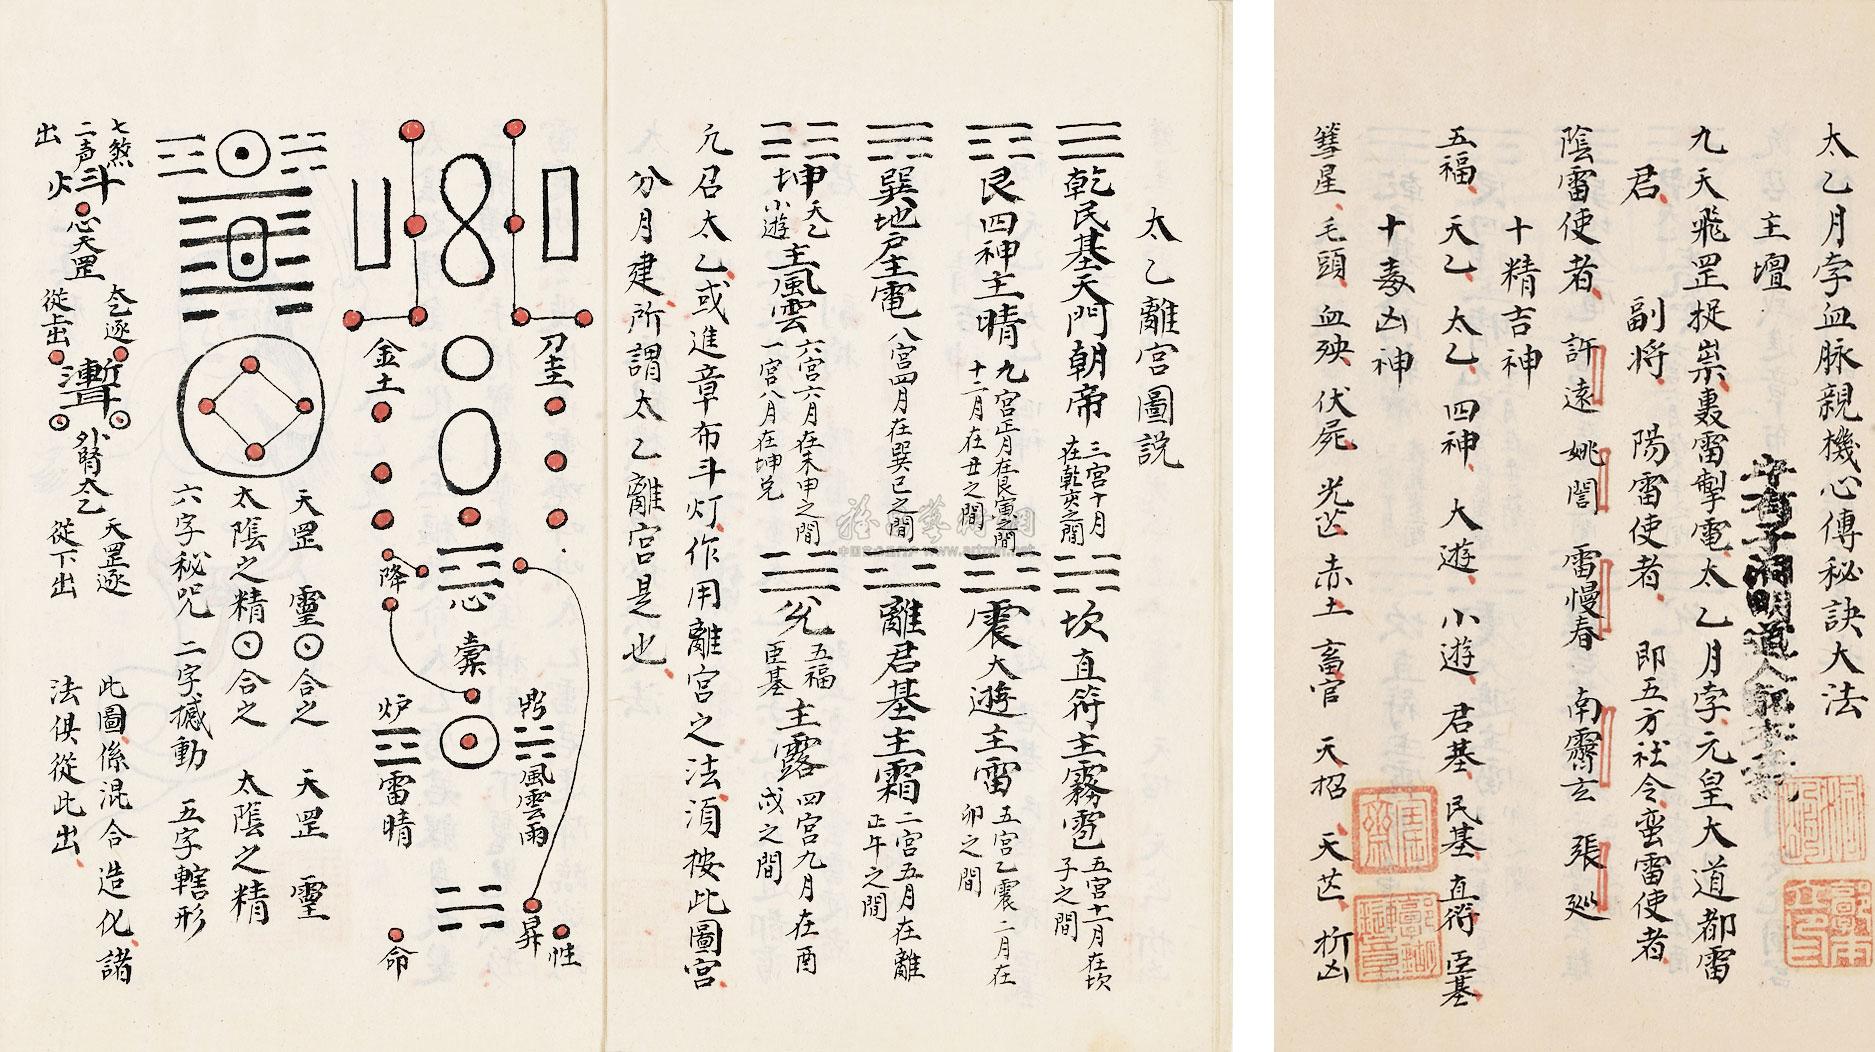 太乙月孛血脉親機心傳秘訣大法
主壇
九天飛罡捉祟裏雷掣電太乙月孛元皇大道都雷
君 副将 陽雷使者 即五方社令蛮雷使者
陰雷使者 許遠 姚誾 雷慢春 南霽云 張巡
十精吉神
五福 天乙 太乙 四神 大遊 小遊 君基 民基 直符 臣基
十毒凶神
彗星 毛頭 血殃 伏屍 光芒 赤土 畜官 天招 天芒 折凶
太乙離宫圖説
乾民基天門朝帝 三宫十月在乾亥之間
坎直符主霧雹 五宫十一月在坎子之間
艮四神主晴 九宫正月在艮寅之間十二月在丑之間
震大遊主雷 五宫乙震二月在卯之間
巽地戸主電 八宫四月在巽巳之間
離君基主霜 二宫五月在離正午之間
坤天乙小遊主風雲 六宫六月在未申之間一宫八月在坤兑
兑五福臣基主露 四宫九月在酉戌之間
凢召太乙或進章布斗灯作用離宫之法須按此圖宫
分月建所謂太乙離宫是也
刀圭
金土
降
心
橐
鼎
炉
風雲雨
雷晴
昇
性
命
天罡 靈 合之 天罡 靈
太陰之精 合之 太陰之精
六字秘咒 二字撼動 五字轄形
七煞
二声斗
出
火
心天罡
太乞逐
從上出
外腎太乞
天罡逐
從下出
此圖係混合造化諸
法俱從此出